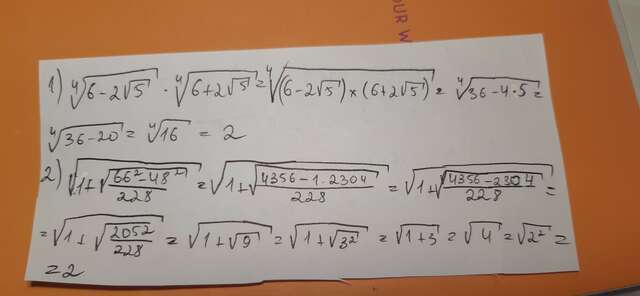 OUR W
1) ⁴√(6-2√5) · ⁴√(6+2√5) = ⁴√((6-2√5)×(6+2√5)) = ⁴√(36-4·5) =
⁴√(36-20) = ⁴√16 = 2
2) √(1+√((66²-48²)/228)) = √(1+√((4356-1·2304)/228)) = √(1+√((4356-2304)/228)) =
= √(1+√(2052/228)) = √(1+√9) = √(1+√3²) = √(1+3) = √4 = √2² =
= 2